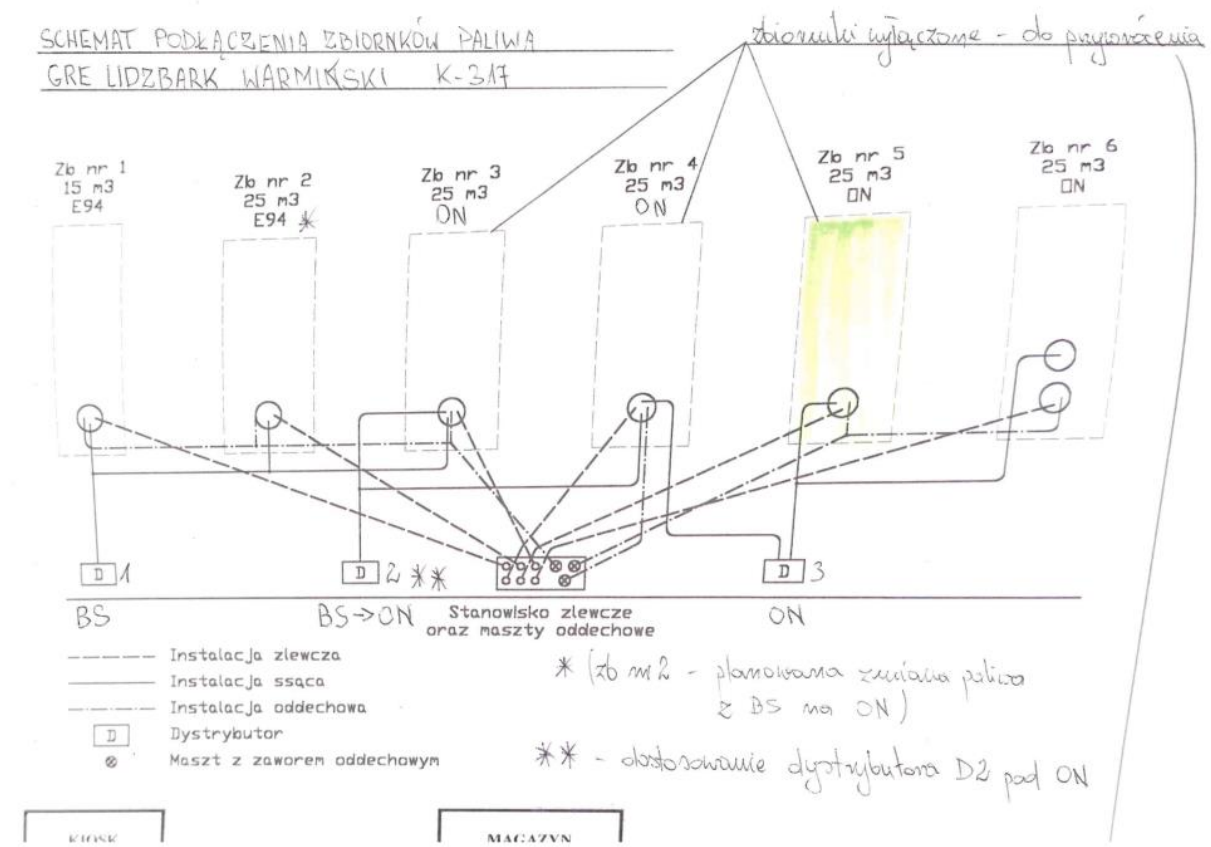 SCHEMAT PODŁĄCZENIA ZBIORNKÓW PALIWA
GRE LIDZBARK WARMIŃSKI K-317
zbiorniki wyłączone - do przywrócenia
Zb nr 1
15 m3
E94
Zb nr 2
25 m3
E94 *
Zb nr 3
25 m3
ON
Zb nr 4
25 m3
ON
Zb nr 5
25 m3
ON
Zb nr 6
25 m3
ON
D 1
D 2 **
D 3
BS
BS->ON
Stanowisko zlewcze
oraz maszty oddechowe
ON
Instalacja zlewcza
Instalacja ssąca
Instalacja oddechowa
D Dystrybutor
Maszt z zaworem oddechowym
* (zb nr 2 - planowana zmiana paliwa
z BS na ON)
** - dostosowanie dystrybutora D2 pod ON
KIOSK
MAGAZYN